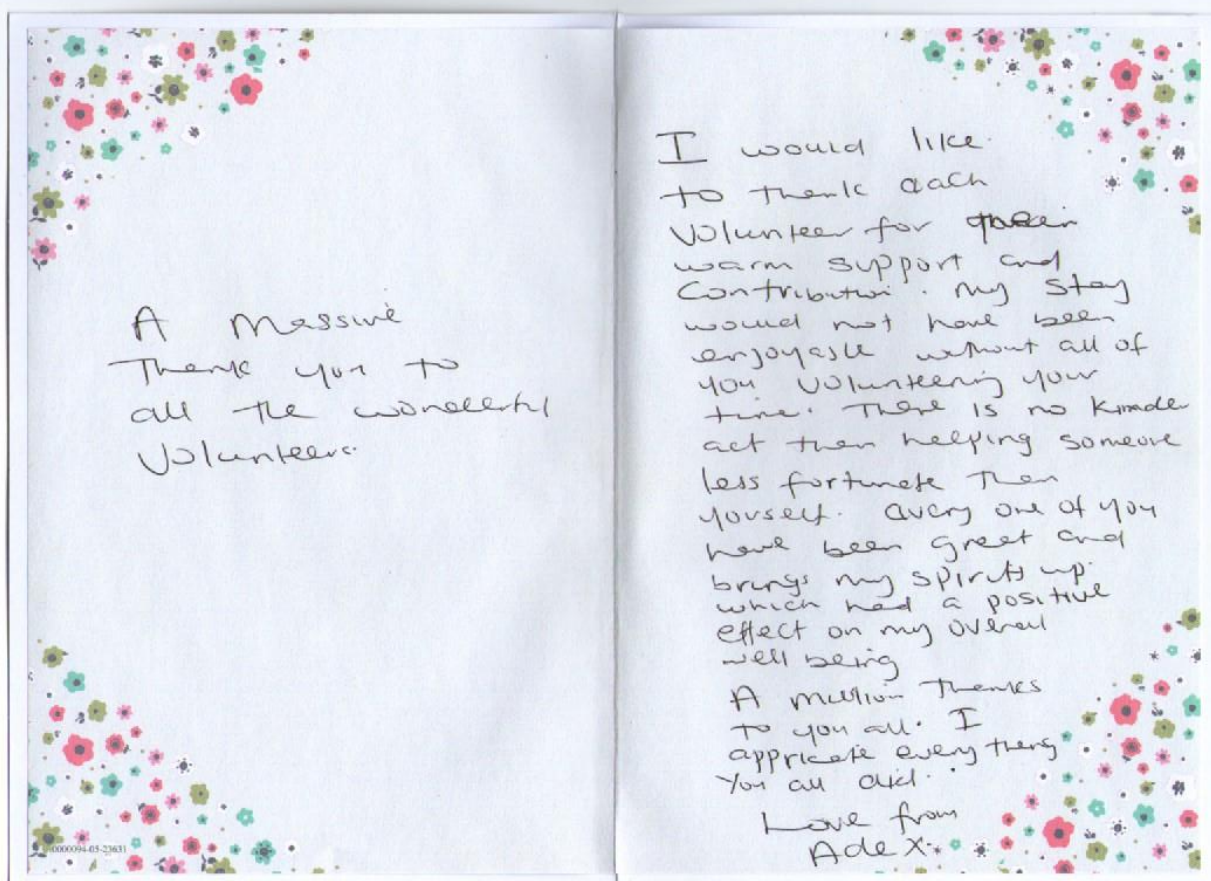 A Massive
Thank you to
all the wonderful
Volunteers.
0000094-05-23631
I would like
to thank each
Volunteer for their
warm support and
Contribution. My stay
would not have been
enjoyable without all of
you volunteering your
time. There is no kinder
act then helping someone
less fortunate then
yourself. every one of you
have been great and
brings my spirits up.
which had a positive
effect on my overall
well being
A million thanks
to you all. I
appricate every thing
You all did.
Love from
Ade X.